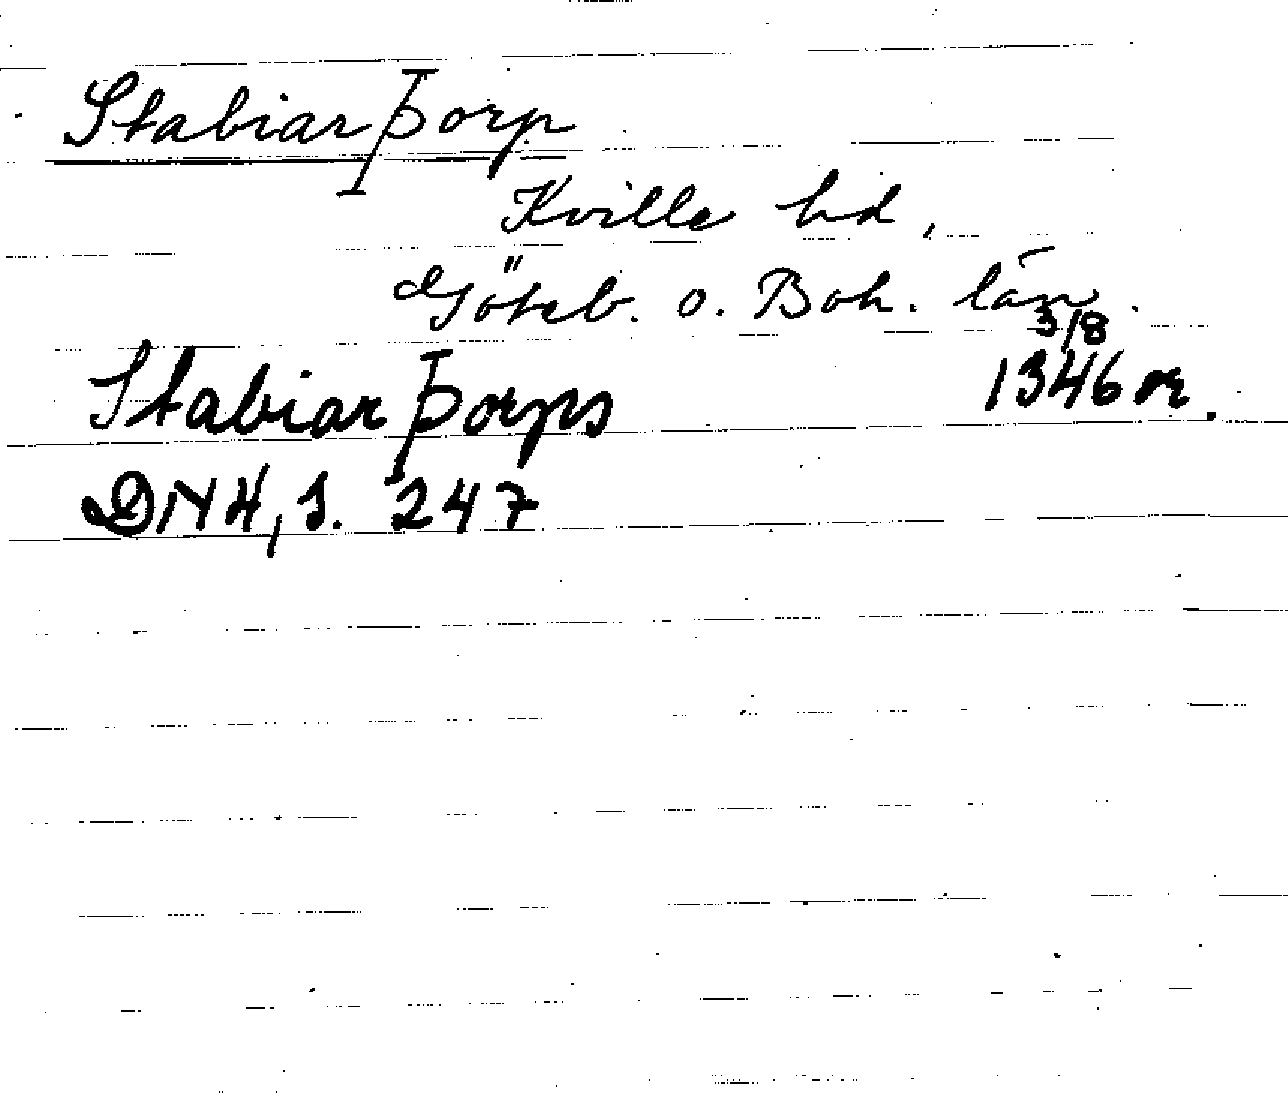 Stabiarþorp
Kville hd,
Göteb. o. Boh. län.
Stabiarþorps 3/8 1346 or.
DN4, s. 247